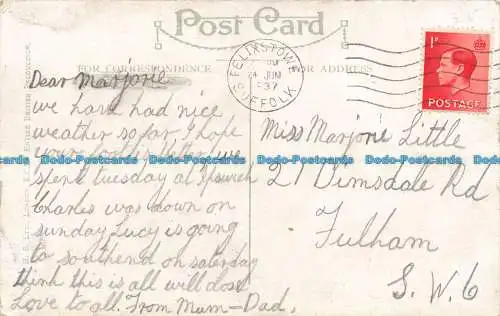 Post Card
FOR CORRESPONDENCE
FOR ADDRESS
FELIXSTOWE
24 JUN
37
SUFFOLK
1D
POSTAGE
Dear Marjorie
we have had nice
weather so far I hope
your is better we
spent tuesday at Ipswich
Charles was down on
sunday Lucy is going
to southend on saterday
think this is all will close
Love to all. From Mum-Dad.
Miss Marjorie Little
27 Dimsdale Rd
Fulham
S.W.6
Postcards
bidStart